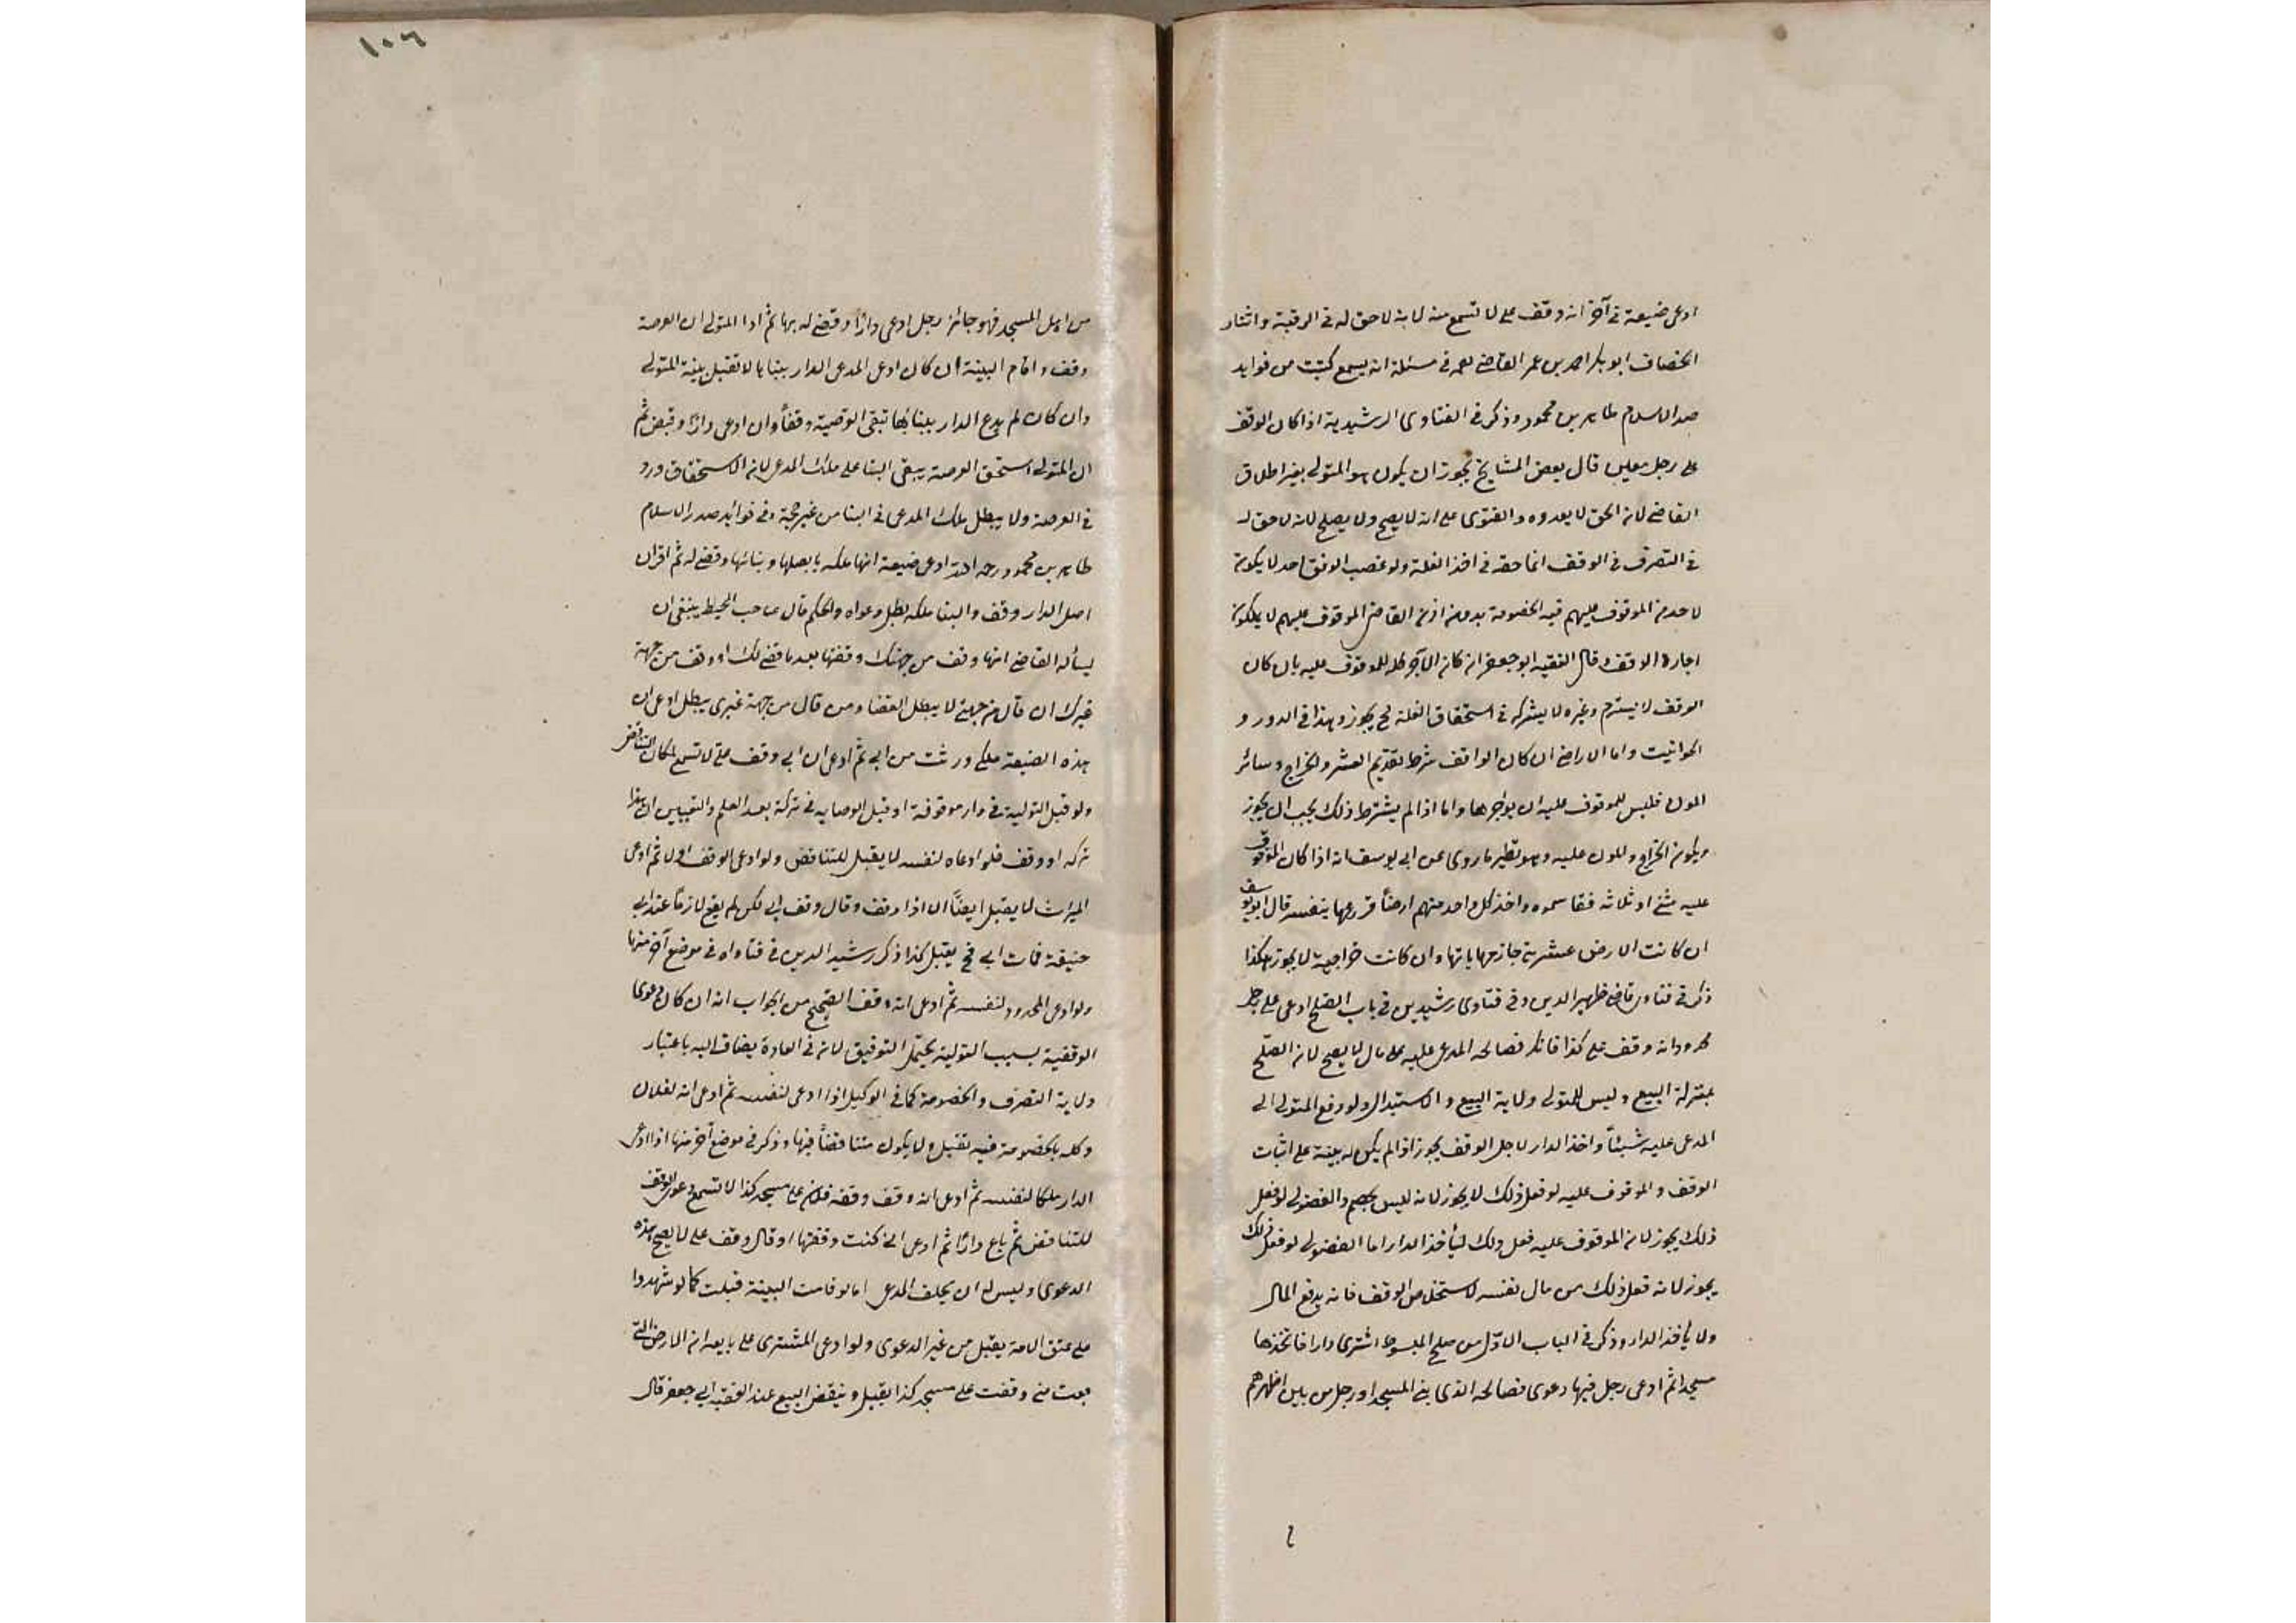 ادعى ضيعة في آخر انه وقف على لا تسمع منه لانه لا حق له في الرقبة واشار
الخصاف ابو بكر احمد بن عمر القاضي نعمه في مسئلة انه يسمع كتبت من فوايد
صدر الاسلام طاهر بن محمود وذكر في الفتاوى الرشيدية اذا كان الوقف
على رجل معين قال بعض المشايخ يجوز ان يكون هو المتولي بغير اطلاق
القاضي لان الحق لا يعدوه والفتوى على انه لا يصح ولا يصلح لانه لا حق له
في التصرف في الوقف انما حقه في اخذ الغلة ولو غصب الوقف احد لا يكون
لاحد من الموقوف عليهم فيه الخصومة بدون اذن القاضي الموقوف عليهم لا يملكون
اجارة الوقف قال الفقيه ابو جعفر ان كان الاجر كله للموقوف عليه بان كان
الوقف لا يسترم وغيره لا يشركه في استحقاق الغلة ح يجوز وهذا في الدور و
الحوانيت واما الاراضي ان كان الواقف شرط تقديم العشر والخراج وسائر
المون فليس للموقوف عليه ان يواجرها واما اذا لم يشترط ذلك يجب ان يجوز
ويكون الخراج والمون عليه وهو نظير ما روى عن ابي يوسف انه اذا كان الموقوف
عليه مثنى او ثلاثة فتقاسموه واخذ كل واحد منهم ارضاً فزرعها بنفسه قال ابو يوسف
ان كانت الارض عشرية جاز مهاياتها وان كانت خراجية لا يجوز هكذا
ذكر في فتاوى قاضي ظهير الدين وفي فتاوى رشيدين في باب الصلح ادعى على رجل
محدودا انه وقف على كذا فانكر فصالحه المدعى عليه على مال لا يصح لان الصلح
بمنزلة البيع وليس للمتولي ولاية البيع والاستبدال ولو دفع المتولي الى
المدعى عليه شيئاً واخذ الدار لاجل الوقف يجوز اذا لم يكن له بينة على اثبات
الوقف والموقوف عليه لو فعل ذلك لا يجوز لانه ليس بخصم والفضولي لو فعل
ذلك يجوز لان الموقوف عليه فعل ذلك ليأخذ الدار اما الفضولي لو فعل ذلك
يجوز لانه فعل ذلك من مال نفسه لاستخلاص الوقف فانه يدفع المال
ولا ياخذ الدار وذكر في الباب الاول من صلح المبسوط اشترى دارا فاتخذها
مسجدا ثم ادعى رجل فيها دعوى فصالحه الذي بنى المسجد او رجل من بين اظهرهم
١٠٦
من اهل المسجد فهو جائز رجل ادعى دارا وقضى له بها ثم ادا المتولي ان العرصة
وقف واقام البينة ان كان ادعى المدعى الدار ببنايها لا تقبل بينة المتولي
وان كان لم يدع الدار ببنائها تبقى الوقفية وقفاً وان ادعى دارًا وقبض ثم
ان المتولي استحق العرصة يبقى البنا على ملك المدعى لان الاستحقاق ورد
في العرصة ولا يبطل ملك المدعى في البنا من غير حجة وفي فوائد صدر الاسلام
طاهر بن محمود رحمه الله ادعى ضيعة انها ملكه باصلها وبنائها وقضى له ثم اقر ان
اصل الدار وقف والبنا ملكه بطل دعواه والحكم قال صاحب المحيط ينبغي ان
يسأله القاضي انها وقف من جهتك وقفتها بعد ما قضى لك او وقف من جهة
غيرك ان قال من جهتي لا يبطل القضا ومن قال من جهة غيري يبطل ادعى ان
هذه الضيعة ملكي ورثت من ابي ثم ادعى ان ابي وقف على لا تسمع لمكان التناقض
ولو قبل التولية في دار موقوفة او قبل الوصاية في تركة بعد العلم والتيقن ان هذا
تركه او وقف فلو ادعاه لنفسه لا يقبل للتناقض ولو ادعى الوقف اولا ثم ادعى
الميراث لا يقبل ايضًا الا اذا وقف وقال وقف ابي لكن لم يقع لازمًا عند ابي
حنيفة فمات ابي ح يقبل كذا ذكر رشيد الدين في فتاواه في موضع آخر منها
ولو ادعى المحدود لنفسه ثم ادعى انه وقف الصحيح من الجواب انه ان كان دعوى
الوقفية بسبب التولية يحتمل التوفيق لان في العادة يضاف اليه باعتبار
ولاية التصرف والخصومة كما في الوكيل اذا ادعى لنفسه ثم ادعى انه لفلان
وكله بالخصومة فيه تقبل ولا يكون متناقضاً فيها وذكر في موضع آخر منها اذا ادعى
الدار ملكا لنفسه ثم ادعى انه وقف وقفه فلان على مسجد كذا لا تسمع دعوى الوقف
للتناقض ثم باع دارًا ثم ادعى اني كنت وقفتها او قال وقف على لا يصح هذه
الدعوى وليس له ان يحلف المدعى اما لو قامت البينة قبلت كما لو شهدوا
على عتق الامة يقبل من غير الدعوى ولو ادعى المشترى على بايعه ان الارض التي
بعت مني وقفت على مسجد كذا يقبل وينقض البيع عند الفقيه ابي جعفر قال